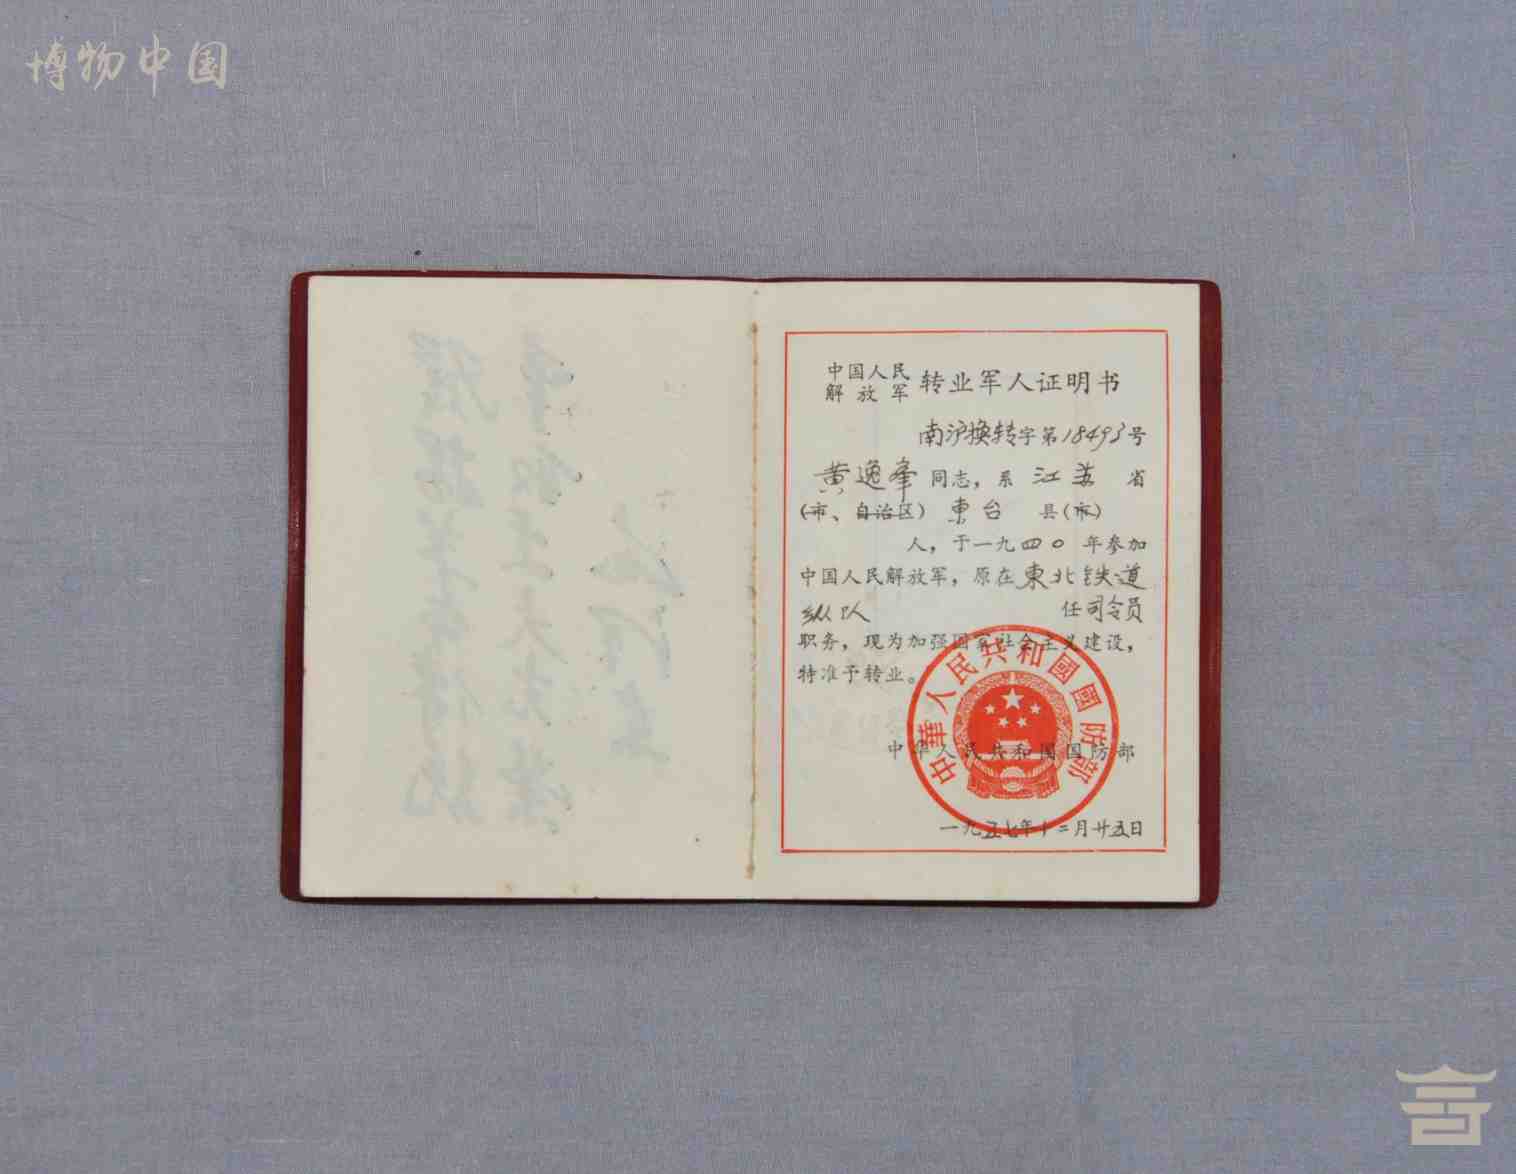 博物中国
中国人民解放军 转业军人证明书
南沪换转字第18493号
黄逸峯同志，系江苏省
（市、自治区）東台县（市）
人，于一九四〇年参加
中国人民解放军，原在東北铁道
纵队 任司令员
职务，现为加强国家社会主义建设，
特准予转业。
中華人民共和國國防部
中华人民共和国国防部
一九五七年十二月廿五日